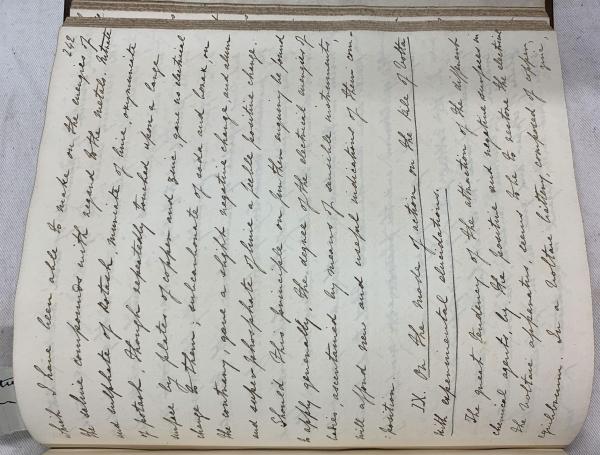 242
which I have been able to make on the energies of
the saline compounds with regard to the metals. Nitrate
and sulphate of potash, muriate of lime, oxymuriate
of potash, though repeatedly touched upon a large
surface by plates of copper and zinc gave no electrical
charge to them; subcarbonate of soda and borax on
the contrary, gave a slight negative charge and alum
and superphosphate of lime a feeble positive charge.
Should this principle on further inquiry be found
to apply generally, the degree of the electrical energies of
bodies, ascertained by means of sensible instruments,
will afford new and useful indications of their com-
position.
IX. On the mode of action on the pile of Volta
with experimental elucidations.
The great tendency of the attraction of the different
chemical agents, by the positive and negative surfaces in
the Voltaic apparatus, seems to be to restore the electrical
equilibrium. In a Voltaic battery, composed of copper,
zinc,